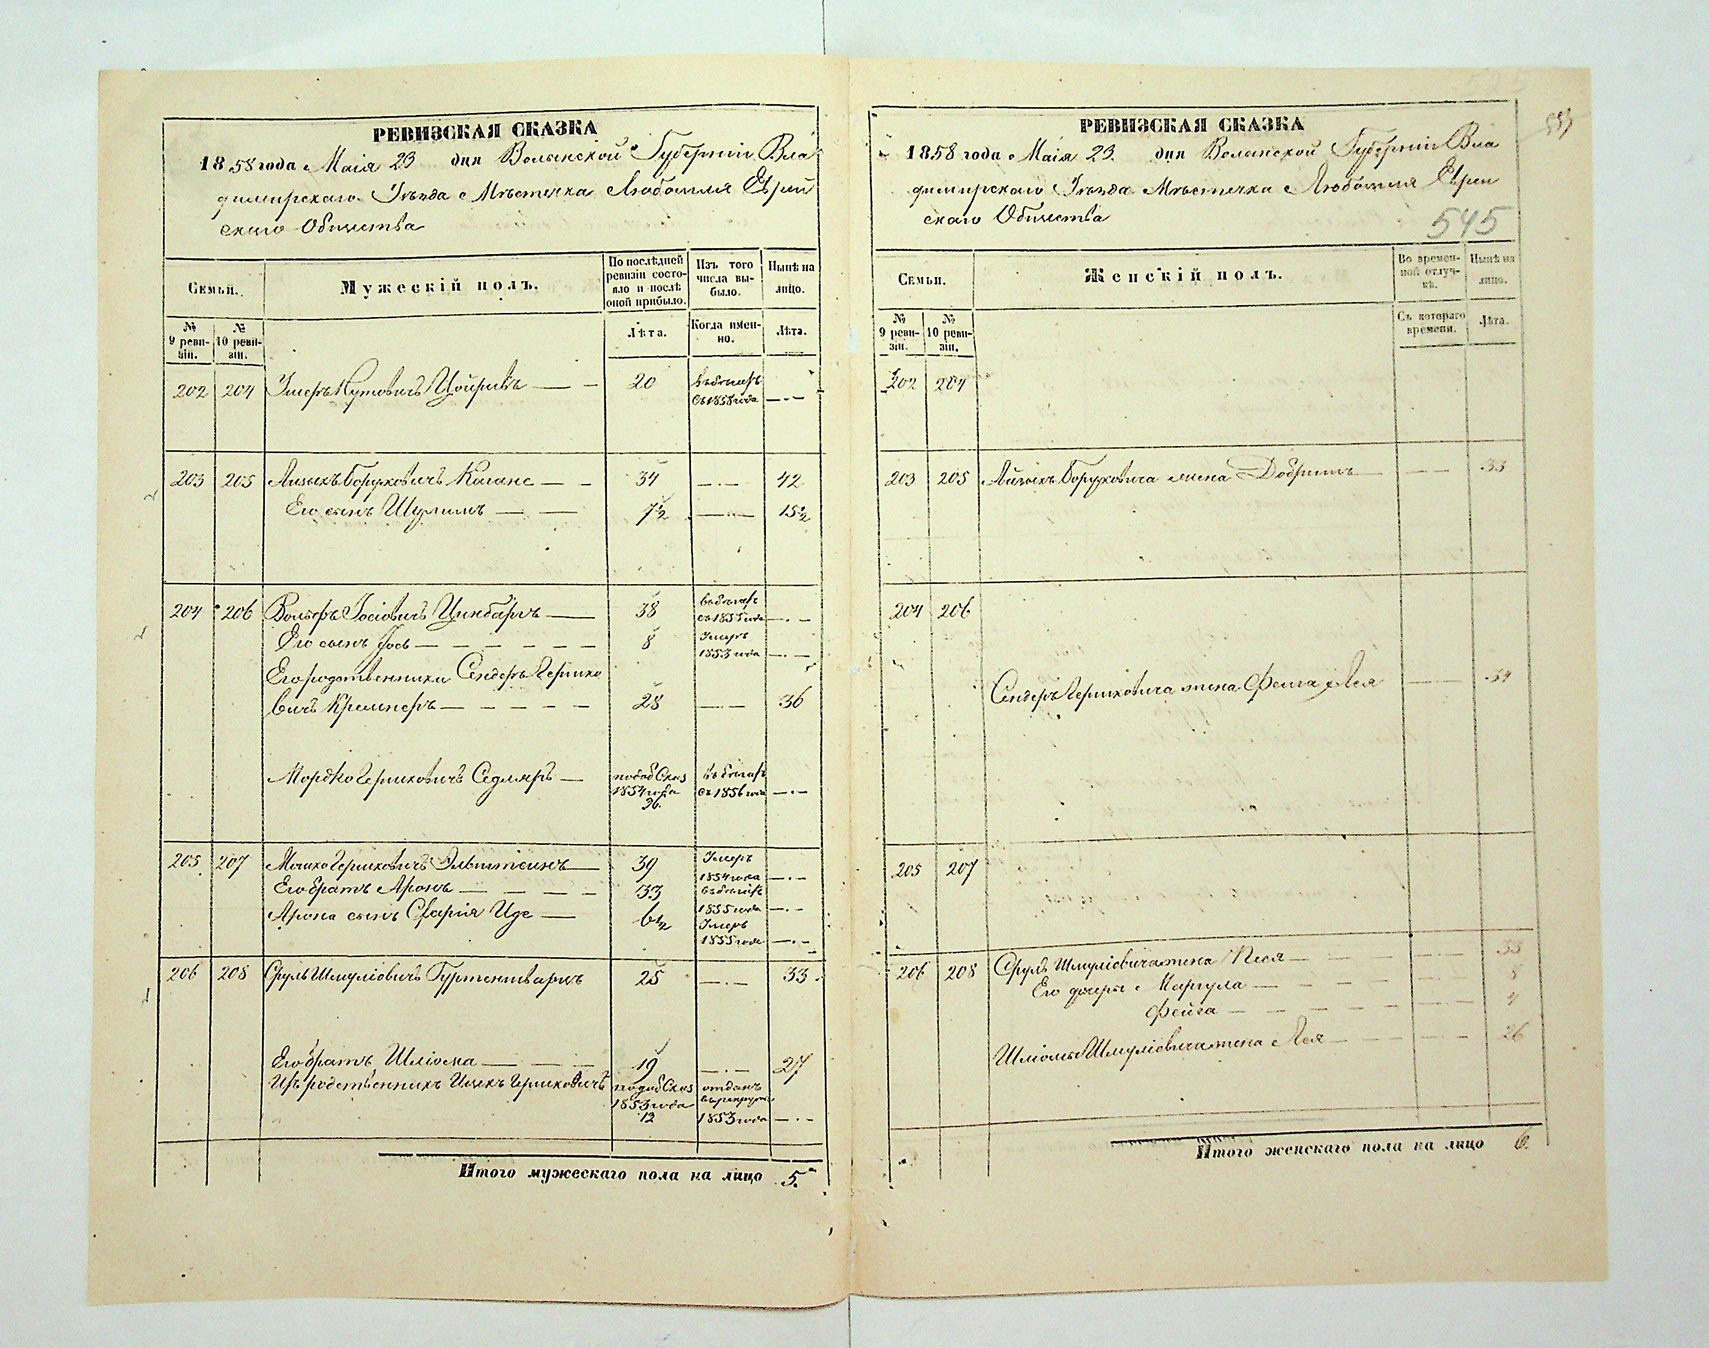 РЕВИЗСКАЯ СКАЗКА
1858 года Маія 23 дня Волынской Губерніи Вла
димирскаго Уѣзда Мѣстечка Любомля Еврей
скаго Общества
Семьи.
Мужескій полъ.
По послѣдней ревизіи состояло и послѣ оной прибыло.
Изъ того числа выбыло.
Нынѣ на лицо.
№ 9 ревизіи.
№ 10 ревизіи.
Лѣта.
Когда именно.
Лѣта.
202 204 20
съ 1858 года
203 205 Айзыкъ Борухович Каганъ 34 42
Его сынъ Шулимъ 7½ 15½
204 206 Вольфъ Іосіовичъ Цинбаръ 38
съ 1855 года
Его сынъ Іось 8 Умеръ
1853 года
Его родственники Сендеръ Гершко
вичъ Кремнеръ 28 36
Мордко Гершковичъ Седляръ
1854 года съ 1856 года
36.
205 207 Мошко Гершковичъ 39 Умеръ
1854 года
Его братъ Аронъ 33
1855 года
Арона сынъ 6½ Умеръ
1855 года
206 208 Сруль Шмуліовичъ 25 33
Его братъ Шліома 19 27
Ихъ родственникъ Ицик Гершковичъ отданъ
1853 года въ рекруты
12 1853 года
Итого мужескаго пола на лицо 5.
РЕВИЗСКАЯ СКАЗКА
1858 года Маія 23 дня Волынской Губерніи Вла
димирскаго Уѣзда Мѣстечка Любомля Еврей
скаго Общества
545
Семьи.
Женскій полъ.
Во временной отлучкѣ.
Нынѣ на лицо.
№ 9 ревизіи.
№ 10 ревизіи.
Съ котораго времени.
Лѣта.
202 204
203 205 Айзыкъ Боруховича жена 33
204 206
Сендеръ Гершковича жена Фейга Лея 34
205 207
206 208 Сруль Шмуліовича жена Песя 33
Его дочери Маргула
Фейга 4
Шліомы Шмуліовича жена Лея 26
Итого женскаго пола на лицо 6.